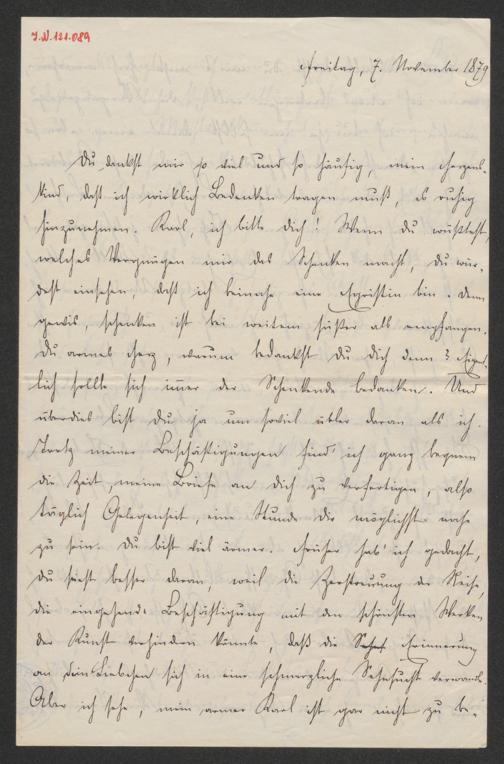 I.N. 121.089
Freitag, 7. November 1879
Du dankst mir so viel und so häufig, mein Herzens-
kind, daß ich wirklich Bedenken tragen muß, es ruhig
hinzunehmen. Karl, ich bitte dich! Wenn du wüßtest,
welches Vergnügen mir das Schenken macht, du wür-
dest einsehen, daß ich beinahe eine Egoistin bin. Denn
gewis, schenken ist bei weitem süßer als empfangen.
Du armes Herz, warum bedankst du dich denn? Eigent-
lich sollte sich immer der Schenkende bedanken. Und
überdies bist du ja um soviel übler daran als ich.
Trotz meiner Beschäftigungen find' ich ganz bequem
die Zeit, meine Briefe an dich zu verfertigen, also
täglich Gelegenheit, eine Stunde dir möglichst nahe
zu sein. Du bist viel ärmer. Früher hab' ich gedacht,
du seiest besser daran, weil die Zerstreuung der Reise,
die eingehende Beschäftigung mit den schönsten Werken
der Kunst verhindern könnte, daß die Erinnerung
an dein Liebchen sich in eine schmerzliche Sehnsucht verwandle.
Aber ich sehe, mein armer Karl ist gar nicht zu be-